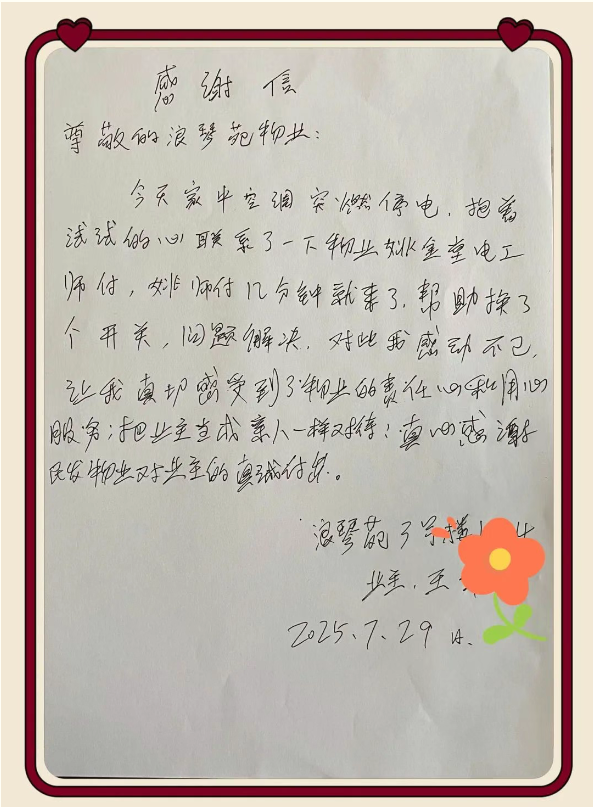 感谢信
尊敬的浪琴苑物业：
今天家中空调突燃停电，抱着
试试的心联系了一下物业姚金堂电工
师付，姚师付几分钟就来了，帮助换了
个开关，问题解决，对此我感动不已，
让我真切感受到了物业的责任心和用心
服务；把业主当成家人一样对待！真心感谢
民发物业对业主的真诚付出。
浪琴苑3号楼
业主，王
2025.7.29日.